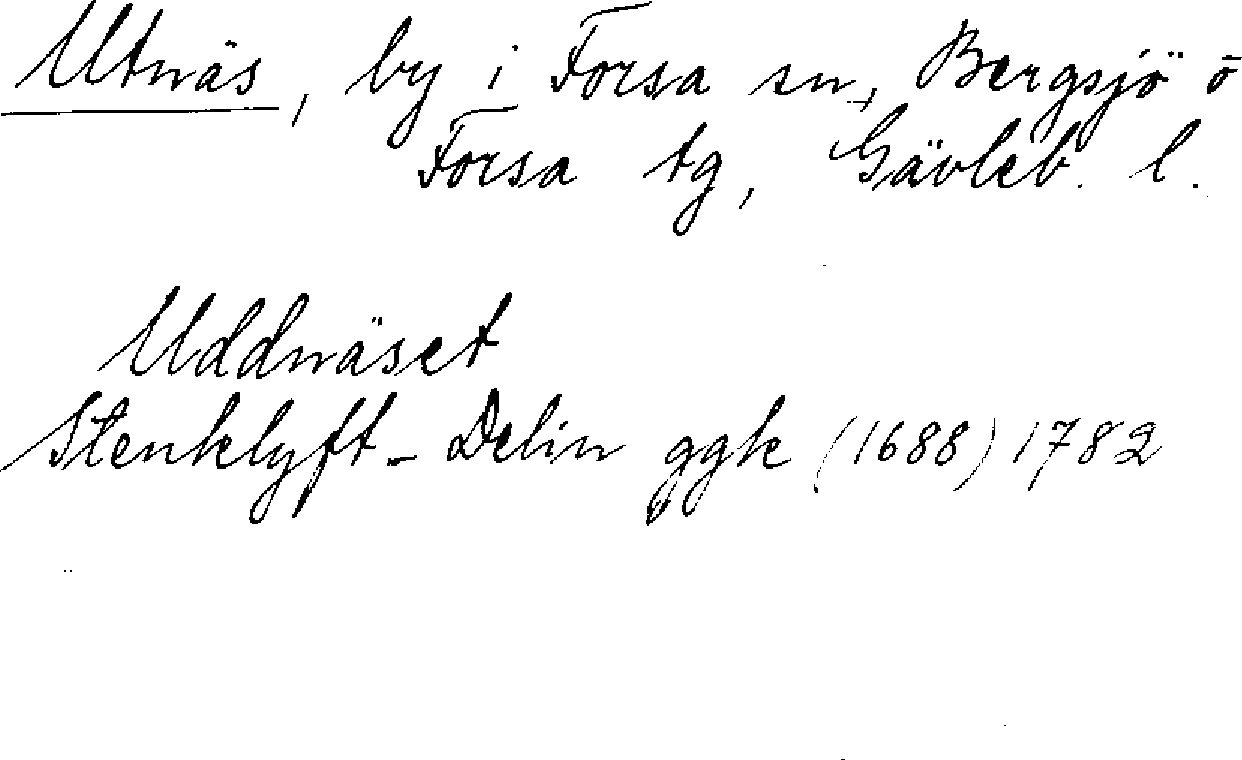 Utnäs, by i Forsa sn, Bergsjö o
Forsa tg, Gävleb. l.
Uddnäset
Stenklyft - Delin ggk (1688) 1782